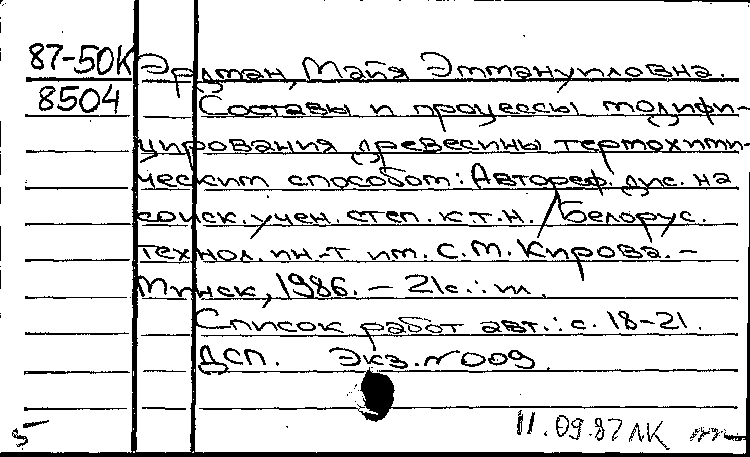 87-50К Эрдман, Майя Эммануиловна.
8504 Составы и процессы модифи-
цирования древесины термохими-
ческим способом: Автореф. дис. на
соиск. учен. степ. к.т.н. / Белорус.
технол. ин-т им. С.М. Кирова. -
Минск, 1986. - 21с.: ил.
Список работ авт.: с. 18-21.
ДСП. Экз. №009.
5
11.09.87 ЛК